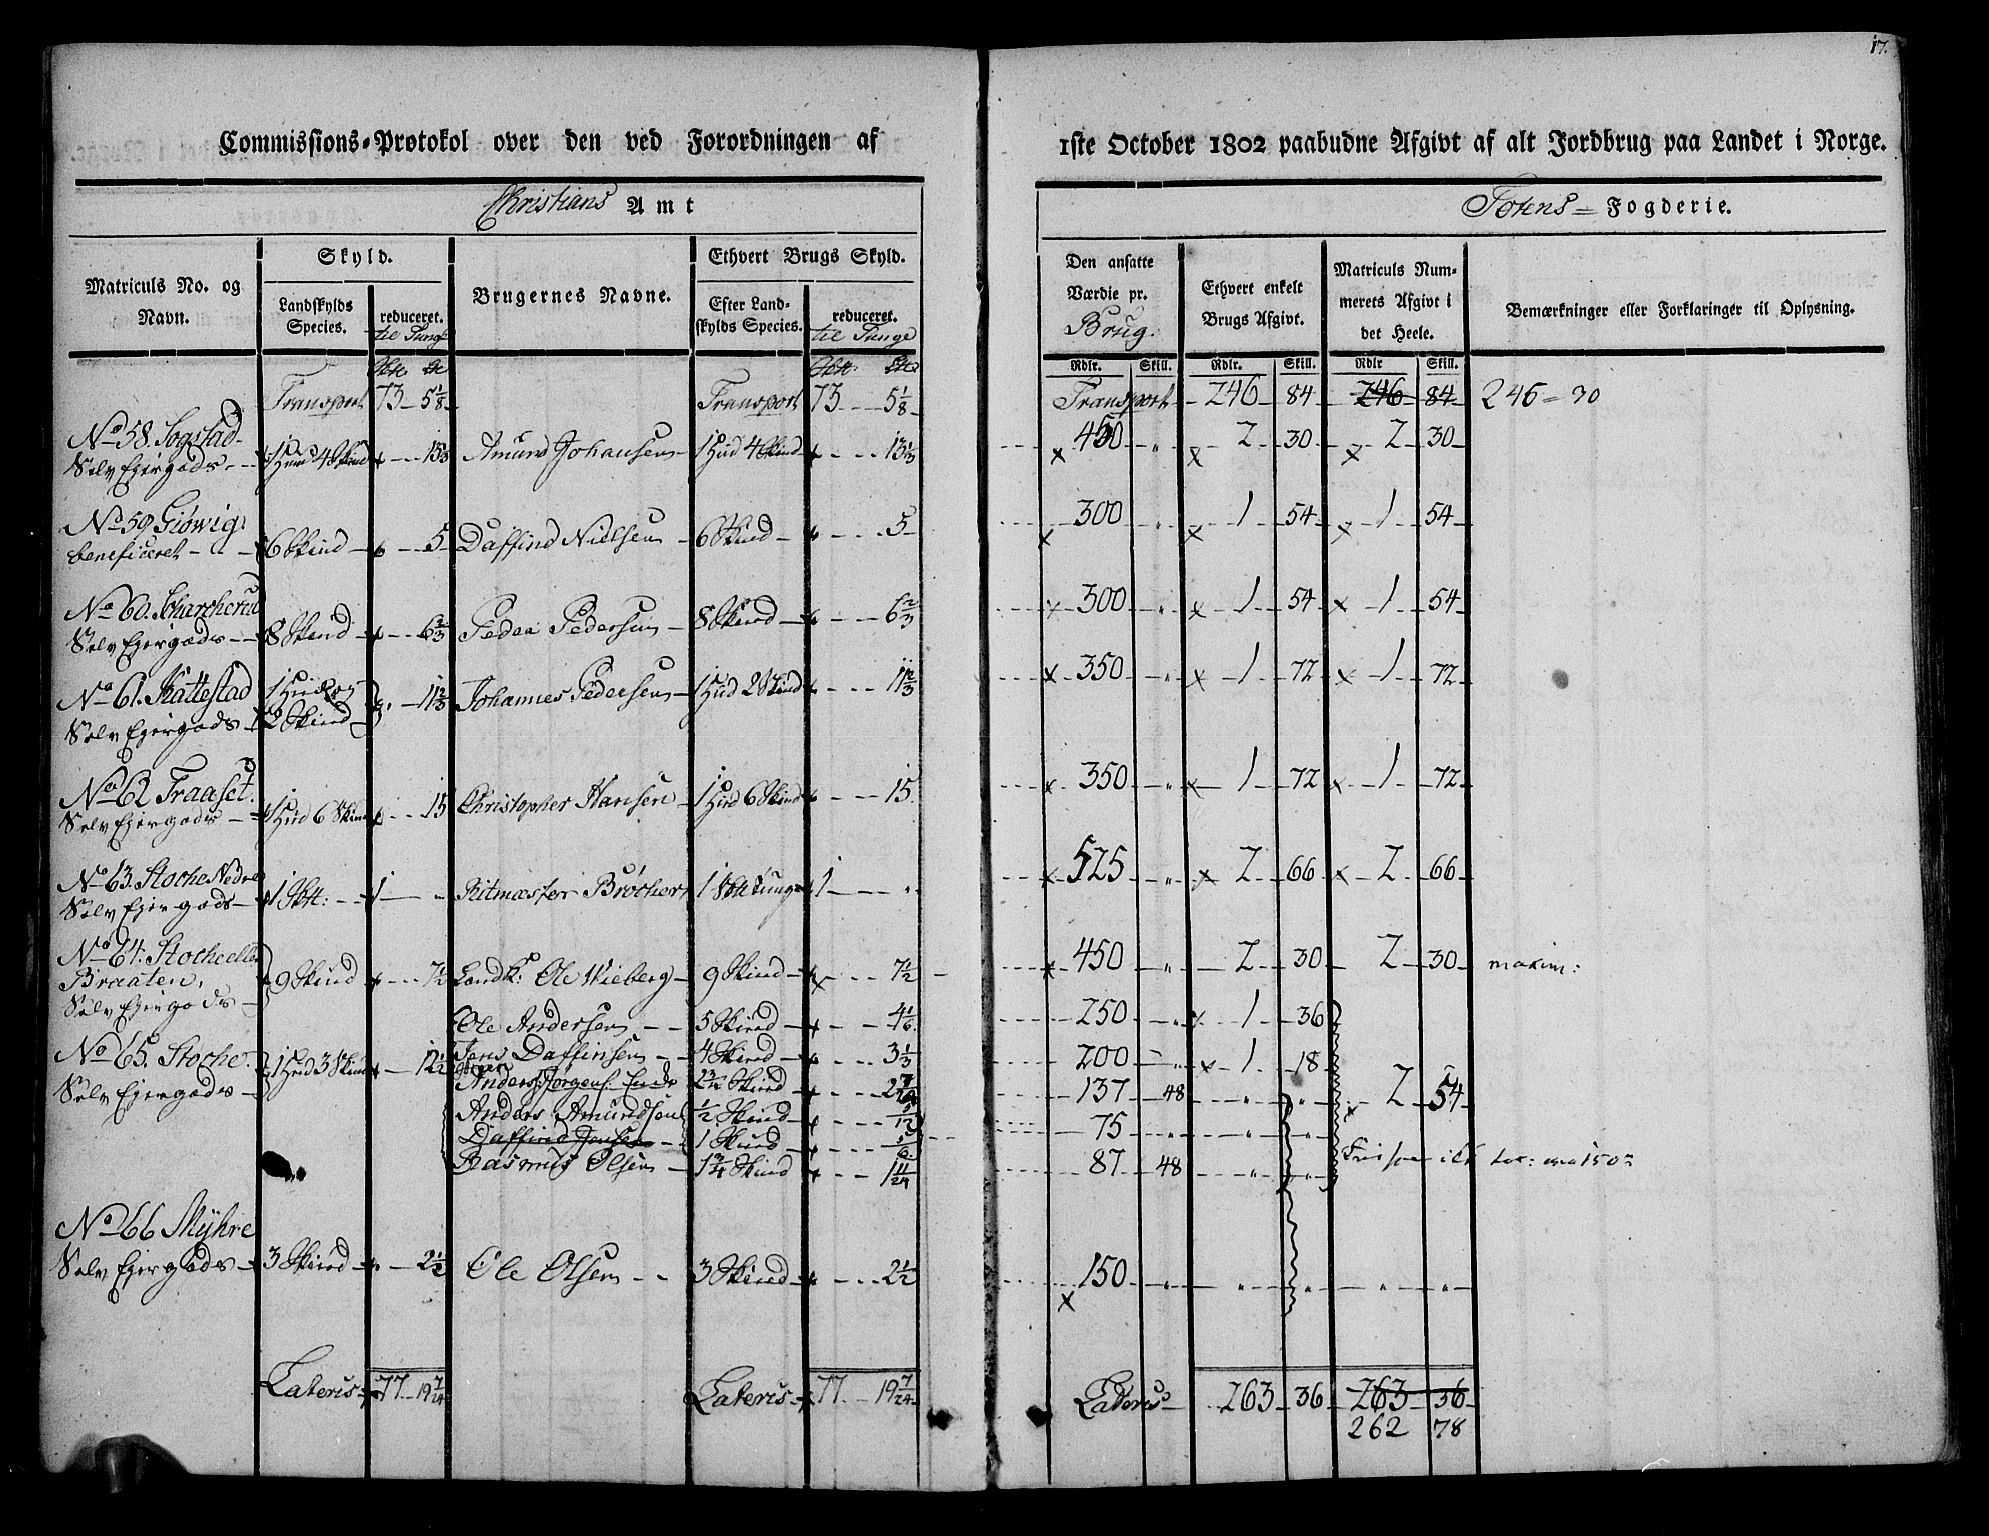 17.
Commissions-Protokol over den ved Forordningen af
1ste October 1802 paabudne Afgivt af alt Jordbrug paa Landet i Norge.
Christians Amt
Totens Fogderie.
Matriculs No. og Navn.
Skyld.
Landskylds Species.
reduceret. til Tunge
Brugernes Navne.
Ethvert Brugs Skyld.
Efter Landskylds Species.
reduceret. til Tunge
Den ansatte Værdie pr. Brug.
Ethvert enkelt Brugs Afgivt.
Matriculs Nummerets Afgivt i det Heele.
Bemærkninger eller Forklaringer til Oplysning.
Rdlr. Skill. Rdlr. Skill. Rdlr Skill.
Transport 73 5 1/8 Transport 73 5 1/8 Transport 246 84 246 84 246 = 30
No 58. Sogstad
Selv Ejergods 1 Hud 4 Skind 13 1/3 Amund Johansen 1 Hud 4 Skind 13 1/3 450 " 2 30 2 30
No 59 Giöwig
beneficeret 6 Skind 5 Daffind Nielsen 6 Skind 5 300 " 1 54 1 54
No 60.
Selv Ejergods 8 Skind 6 2/3 Peder Pedersen 8 Skind 6 2/3 300 " 1 54 1 54
No 61. Skattestad 1 Hud og
Selv Ejergods 2 Skind 11 2/3 Johannes Pedersen 1 Hud 2 Skind 11 2/3 350 " 1 72 1 72
No 62 Fraaset
Selv Ejergods 1 Hud 6 Skind 15 Christopher Hansen 1 Hud 6 Skind 15 350 " 1 72 1 72
No 63. Stocke Nedre
Selv Ejergods 1 Skt: 1 " Ritmæster Bröcher 1 Skt Tunge 1 " 525 " 2 66 2 66
No 64. Stocke eller
Braaten,
Selv Ejergods 9 Skind 7 1/2 Ole Wieberg 9 Skind 7 1/2 450 " 2 30 2 30 maxim:
Ole Andersen 5 Skind 4 1/6 250 " 1 36
No 65. Stocke
Selv Ejergods 1 Hud 3 Skind 12 1/2 Jens Daffinsen 4 Skind 3 1/3 200 1 18
Anders Jörgens: Enke 2 1/2 Skind 137 48 " " 2 54
Anders Amundsen 1/2 Skind 5/12 75 " " "
Daffind Jensen 1 Skind 5/6
Rasmus Olsen 1 3/4 Skind 1 11/24 87 48 " "
No 66 Myhre
Selv Ejergods 3 Skind 2 1/2 Ole Olsen 3 Skind 2 1/2 150 " " " " "
Lateris 77 19 7/24 Lateris 77 19 7/24 Lateris 263 36 263 36
262 78